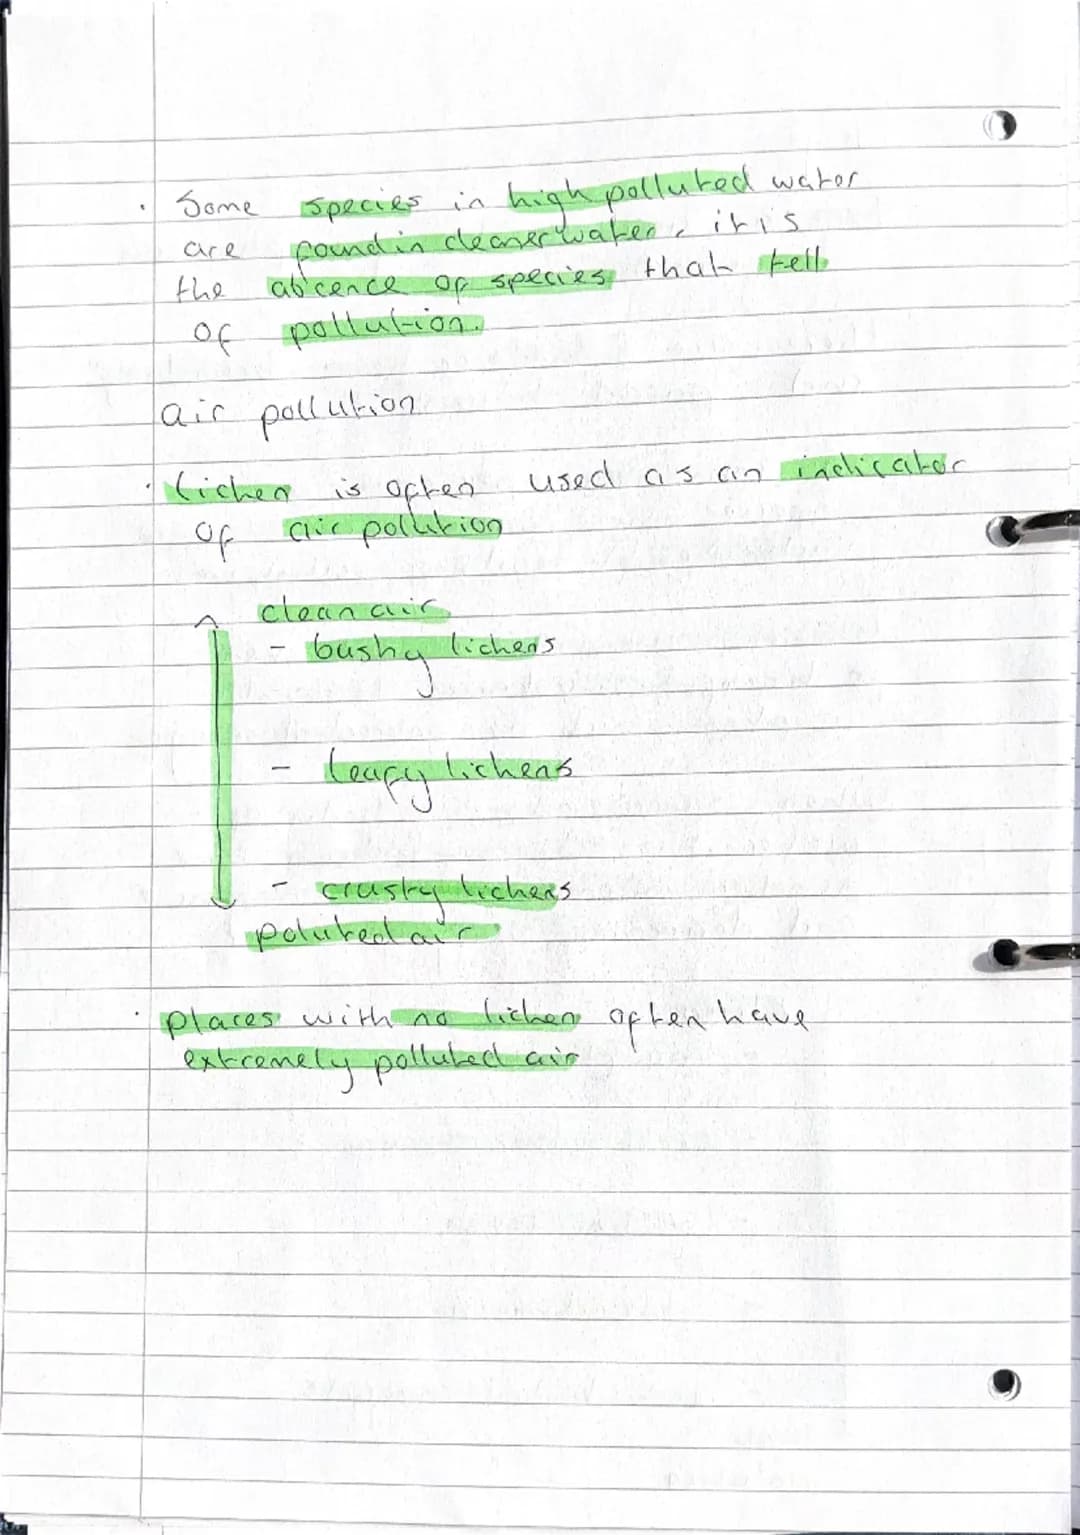 · Some species in high polluted water
are found in cleaner water, it is
the abscence of species that tell
of pollution.
air pollution
· Lichen is often used as an indicator
of air pollution
clean air
- bushy lichens
- leafy lichens
- crusty lichens
poluted air
· places with no lichen often have
extremely polluted air